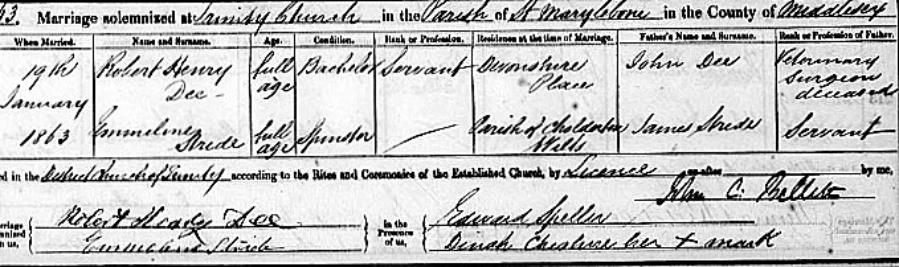 3. Marriage solemnized at Trinity Church in the Parish of St Marylebone in the County of Middlesex
When Married. Name and Surname. Age. Condition. Rank or Profession. Residence at the time of Marriage. Father's Name and Surname. Rank or Profession of Father.
19th January 1863 Robert Henry Dee full age Bachelor Servant Devonshire Place John Dee Veterinary Surgeon deceased
Emmeline Stride full age Spinster Parish of Cholderton Wilts James Stride Servant
ed in the District Church of Trinity according to the Rites and Ceremonies of the Established Church, by Licence or after by me,
John C.
arriage Robert Henry Dee In the Edward Speller
emnized Presence
n us, Emmeline Stride of us, Dinah her + mark